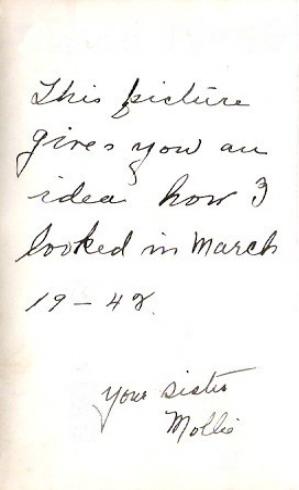 This picture
gives you an
idea how I
looked in March
19-42.
Your sister
Mollie